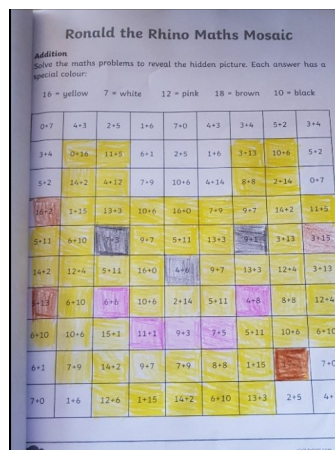 Ronald the Rhino Maths Mosaic
Addition
Solve the maths problems to reveal the hidden picture. Each answer has a
special colour:
16 = yellow 7 = white 12 = pink 18 = brown 10 = black
0+7 4+3 2+5 1+6 7+0 4+3 3+4 5+2 3+4
3+4 0+16 11+5 6+1 2+5 1+6 3+13 10+6 5+2
5+2 14+2 4+12 7+9 10+6 4+14 8+8 2+14 0+7
16+2 1+15 13+3 10+6 16+0 7+9 9+7 14+2 11+5
5+11 6+10 9+7 5+11 13+3 9+1 3+13 3+15
14+2 12+4 5+11 16+0 4+6 9+7 13+3 12+4 3+13
5+13 6+10 6+6 10+6 2+14 5+11 4+8 8+8 12+4
6+10 10+6 15+1 11+1 9+3 7+5 5+11 10+6 6+10
6+1 7+9 14+2 9+7 7+9 8+8 1+15
7+0 1+6 12+6 1+15 14+2 6+10 13+3 2+5